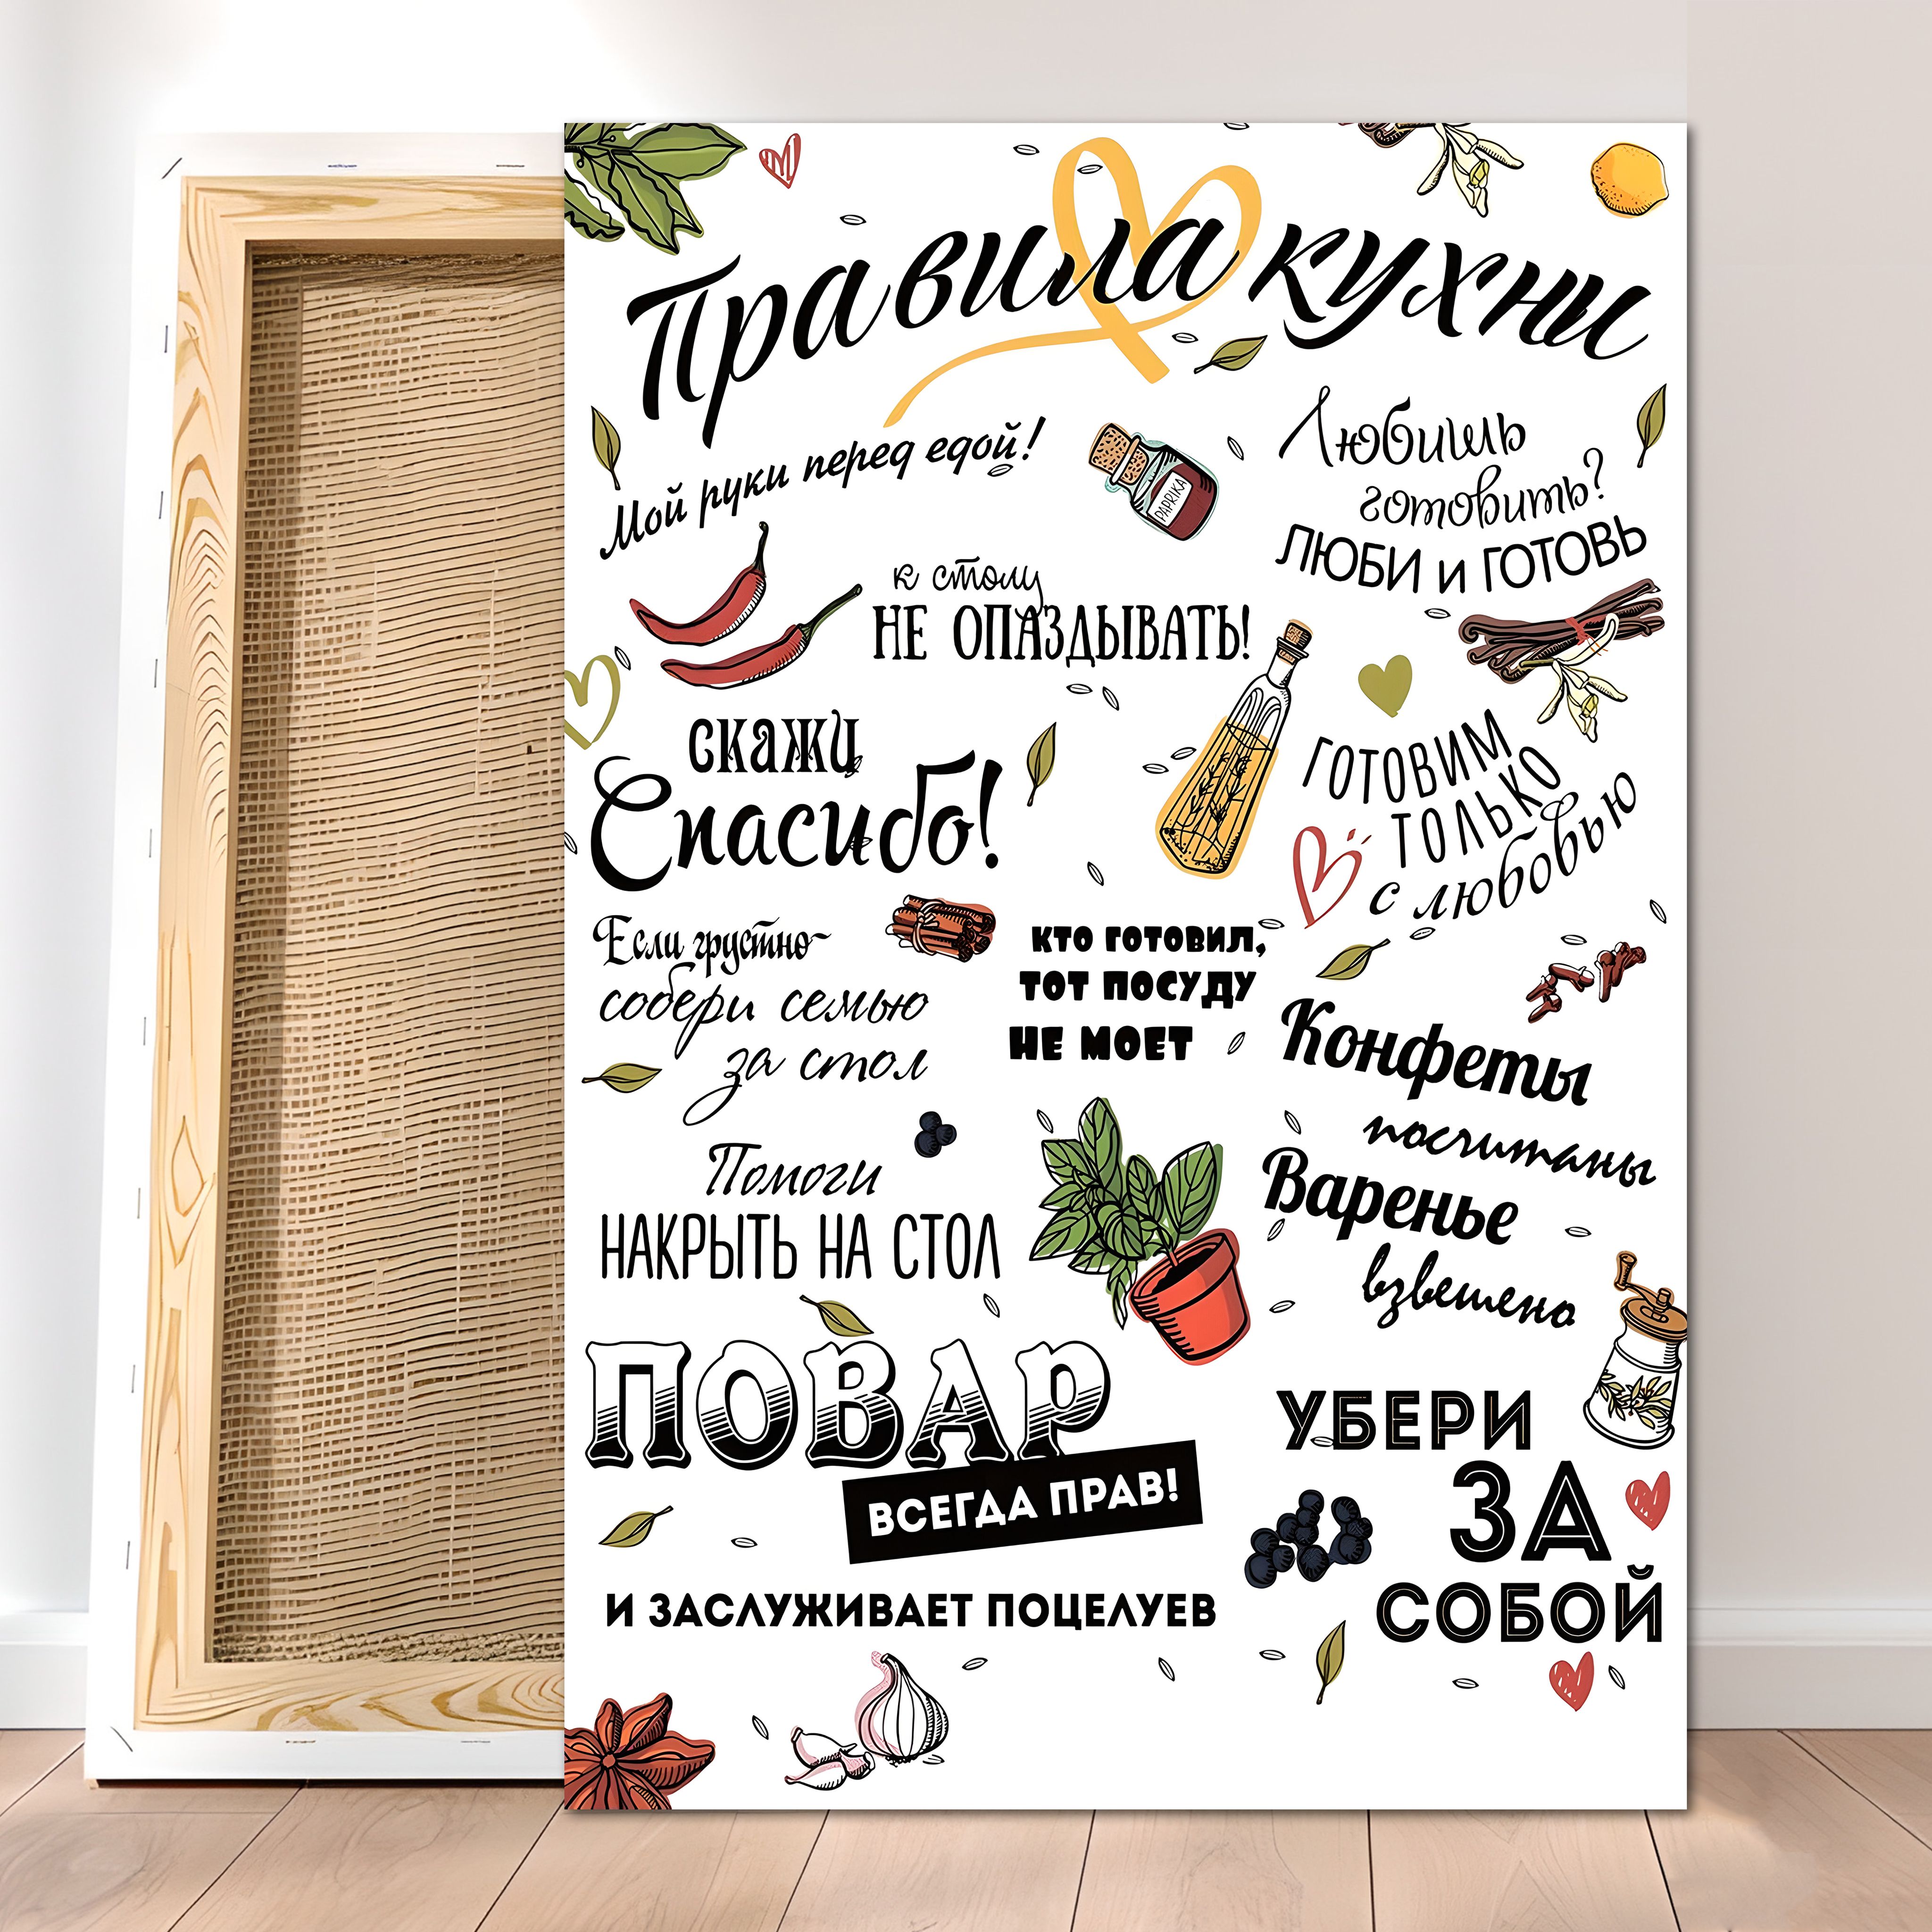 Правила кухни
Мой руки перед едой!
PAPRIKA
Любишь
готовить?
ЛЮБИ и ГОТОВЬ
к столу
НЕ ОПАЗДЫВАТЬ!
скажи
Спасибо!
ГОТОВИМ
ТОЛЬКО
с любовью
Если грустно-
собери семью
за стол
КТО ГОТОВИЛ,
ТОТ ПОСУДУ
НЕ МОЕТ
Конфеты
посчитаны
Варенье
взвешено
Помоги
НАКРЫТЬ НА СТОЛ
ПОВАР
ВСЕГДА ПРАВ!
И ЗАСЛУЖИВАЕТ ПОЦЕЛУЕВ
УБЕРИ
ЗА
СОБОЙ